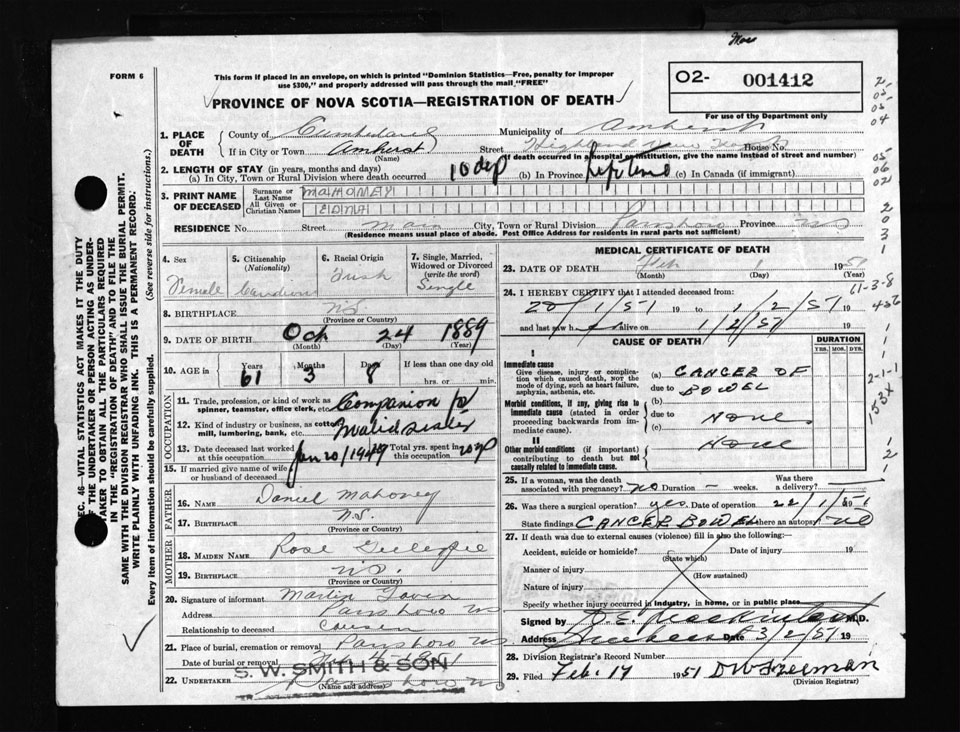 FORM 6
This form if placed in an envelope, on which is printed "Dominion Statistics—Free, penalty for improper
use $300," and properly addressed will pass through the mail "FREE"
PROVINCE OF NOVA SCOTIA—REGISTRATION OF DEATH
O2- 001412
For use of the Department only
1. PLACE OF DEATH
County of Cumberland Municipality of Amherst
If in City or Town Amherst Street Highland View House No.
(Name) (If death occurred in a hospital or institution, give the name instead of street and number)
2. LENGTH OF STAY (in years, months and days)
(a) In City, Town or Rural Division where death occurred 10 days (b) In Province Life Time (c) In Canada (if immigrant)
3. PRINT NAME OF DECEASED
Surname or Last Name MAHONEY
All Given or Christian Names EDNA
RESIDENCE No. Street Main City, Town or Rural Division Parrsboro Province NS
(Residence means usual place of abode. Post Office Address for residents in rural parts not sufficient)
4. Sex Female
5. Citizenship (Nationality) Canadian
6. Racial Origin Irish
7. Single, Married, Widowed or Divorced (write the word) Single
8. BIRTHPLACE N.S.
(Province or Country)
9. DATE OF BIRTH Oct 24 1889
(Month) (Day) (Year)
10. AGE in Years 61 Months 3 Days 8 If less than one day old
hrs. or min.
OCCUPATION
11. Trade, profession or kind of work as spinner, teamster, office clerk, etc. Companion for
12. Kind of industry or business, as cotton mill, lumbering, bank, etc. Maiden sister
13. Date deceased last worked at this occupation Jan 20/1949 Total yrs. spent in this occupation
15. If married give name of wife or husband of deceased
FATHER
16. Name Daniel Mahoney
17. Birthplace N.S.
(Province or Country)
MOTHER
18. Maiden Name Rose Gillespie
19. Birthplace N.S.
(Province or Country)
20. Signature of informant Martin
Address Parrsboro NS
Relationship to deceased Cousin
21. Place of burial, cremation or removal Parrsboro NS
Date of burial or removal
22. UNDERTAKER S. W. SMITH & SON
(Name and address) Parrsboro NS
MEDICAL CERTIFICATE OF DEATH
23. DATE OF DEATH Feb 1 1951
(Month) (Day) (Year)
24. I HEREBY CERTIFY that I attended deceased from:
20/1/51 19 to 1/2/51 19
and last saw h alive on 1/2/51 19
CAUSE OF DEATH
DURATION
YRS. MOS. DYS.
I
Immediate cause
Give disease, injury or complication which caused death, NOT the mode of dying, such as heart failure, asphyxia, asthenia, etc.
(a) CANCER OF
due to BOWEL
Morbid conditions, if any, giving rise to immediate cause (stated in order proceeding backwards from immediate cause).
(b)
due to None
(c)
II
Other morbid conditions (if important) contributing to death but not causally related to immediate cause.
None
25. If a woman, was the death associated with pregnancy? no Duration – weeks. Was there a delivery?
26. Was there a surgical operation? yes. Date of operation 22/1/1951
State findings CANCER BOWEL Was there an autopsy? no
27. If death was due to external causes (violence) fill in also the following:—
Accident, suicide or homicide? Date of injury 19
(State which)
Manner of injury
(How sustained)
Nature of injury
Specify whether injury occurred in industry, in home, or in public place
Signed by M.D.
Address Date 3/2/51 19
28. Division Registrar's Record Number
29. Filed Feb. 17 1951 DW Freeman
(Division Registrar)
SEC. 46—VITAL STATISTICS ACT MAKES IT THE DUTY
OF THE UNDERTAKER OR PERSON ACTING AS UNDERTAKER TO OBTAIN ALL THE PARTICULARS REQUIRED
IN THE "REGISTRATION OF DEATH" AND TO FILE THE
SAME WITH THE DIVISION REGISTRAR WHO SHALL ISSUE THE BURIAL PERMIT.
WRITE PLAINLY WITH UNFADING INK. THIS IS A PERMANENT RECORD.
Every item of information should be carefully supplied. (See reverse side for instructions.)
61-3-8